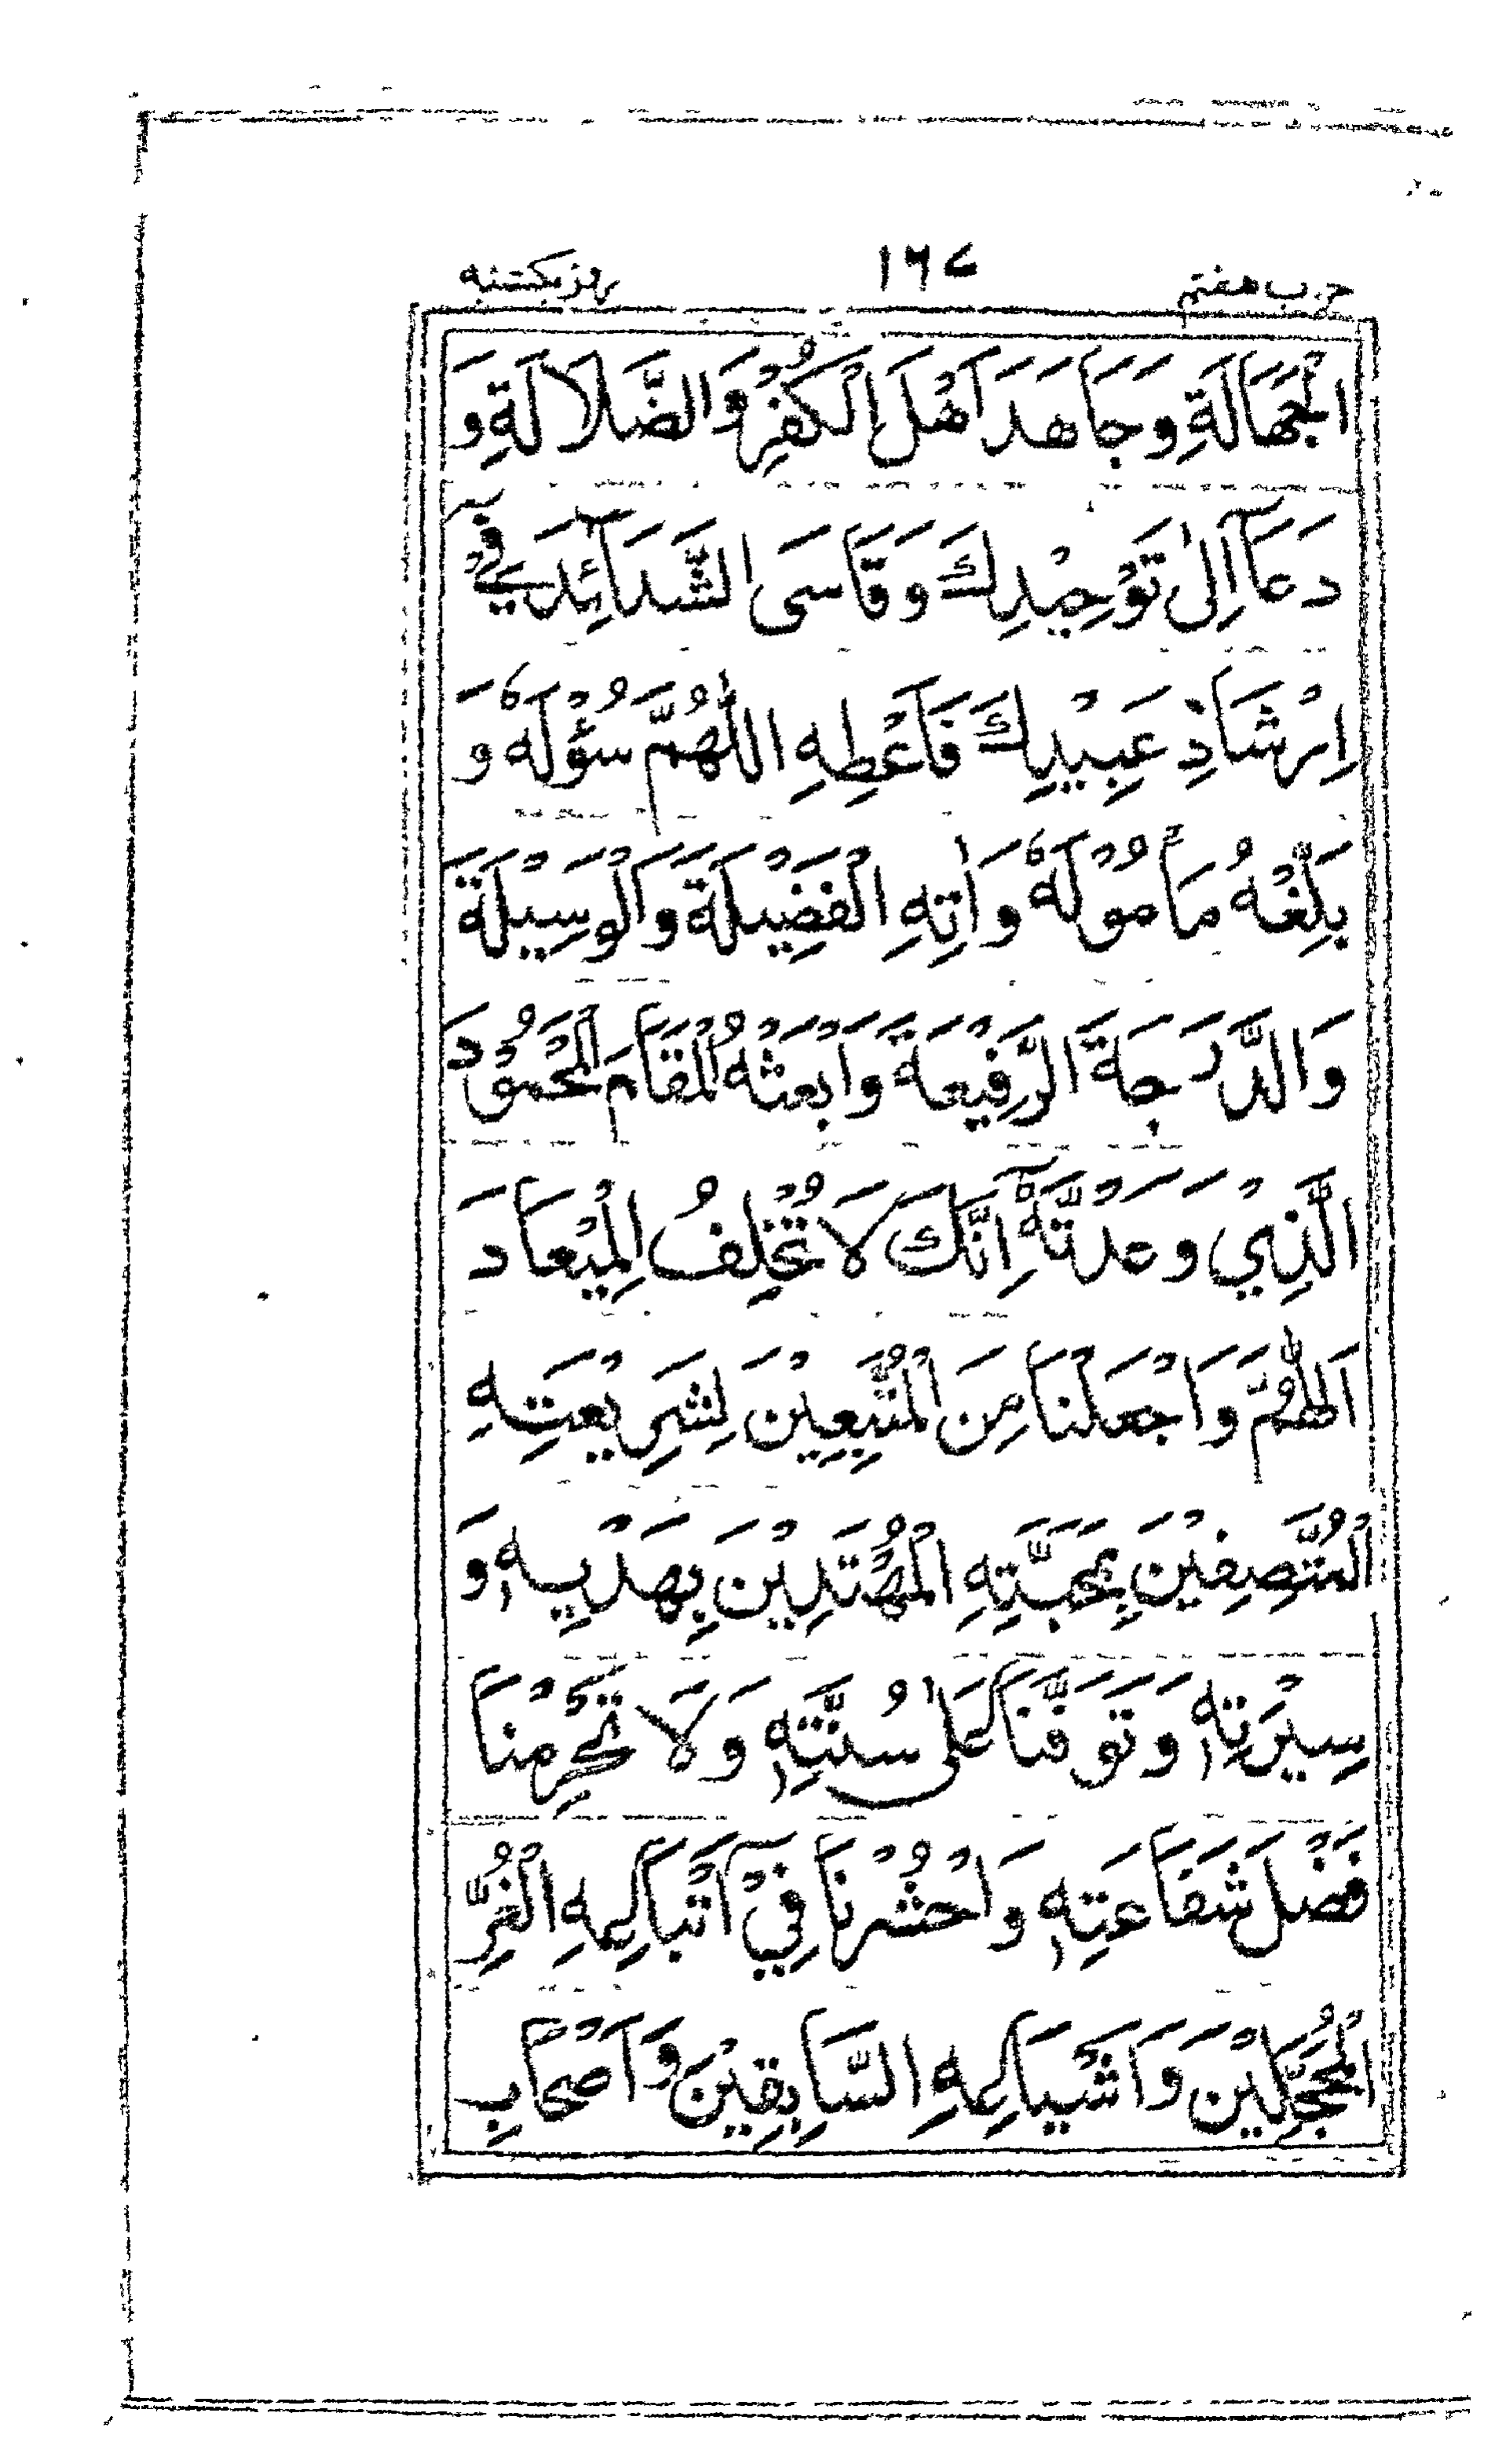 حزب هفتم ١٦٧ روز یکشنبه
الْجَهَالَةِ وَجَاهَدَ اَهْلَ الْكُفْرِ وَالضَّلَالَةِ وَ
دَعَآ اِلٰى تَوْحِيْدِكَ وَقَاسَى الشَّدَآئِدَ فِيْ
اِرْشَادِ عَبِيْدِكَ فَاَعْطِهِ اللّٰهُمَّ سُؤْلَهٗ وَ
بَلِّغْهُ مَأْمُوْلَهٗ وَاٰتِهِ الْفَضِيْلَةَ وَالْوَسِيْلَةَ
وَالدَّرَجَةَ الرَّفِيْعَةَ وَابْعَثْهُ الْمَقَامَ الْمَحْمُوْدَ
الَّذِيْ وَعَدْتَّهٗٓ اِنَّكَ لَا تُخْلِفُ الْمِيْعَادَ
اَللّٰهُمَّ وَاجْعَلْنَا مِنَ الْمُتَّبِعِيْنَ لِشَرِيْعَتِهِ
الْمُتَّصِفِيْنَ بِمَحَبَّتِهِ الْمُهْتَدِيْنَ بِهَدْيِهٖ وَ
سِيْرَتِهٖ وَتَوَفَّنَا عَلٰى سُنَّتِهٖ وَلَا تَحْرِمْنَا
فَضْلَ شَفَاعَتِهٖ وَاحْشُرْنَا فِيْٓ اَتْبَاعِهِ الْغُرِّ
الْمُحَجَّلِيْنَ وَاَشْيَاعِهِ السَّابِقِيْنَ وَاَصْحَابِ